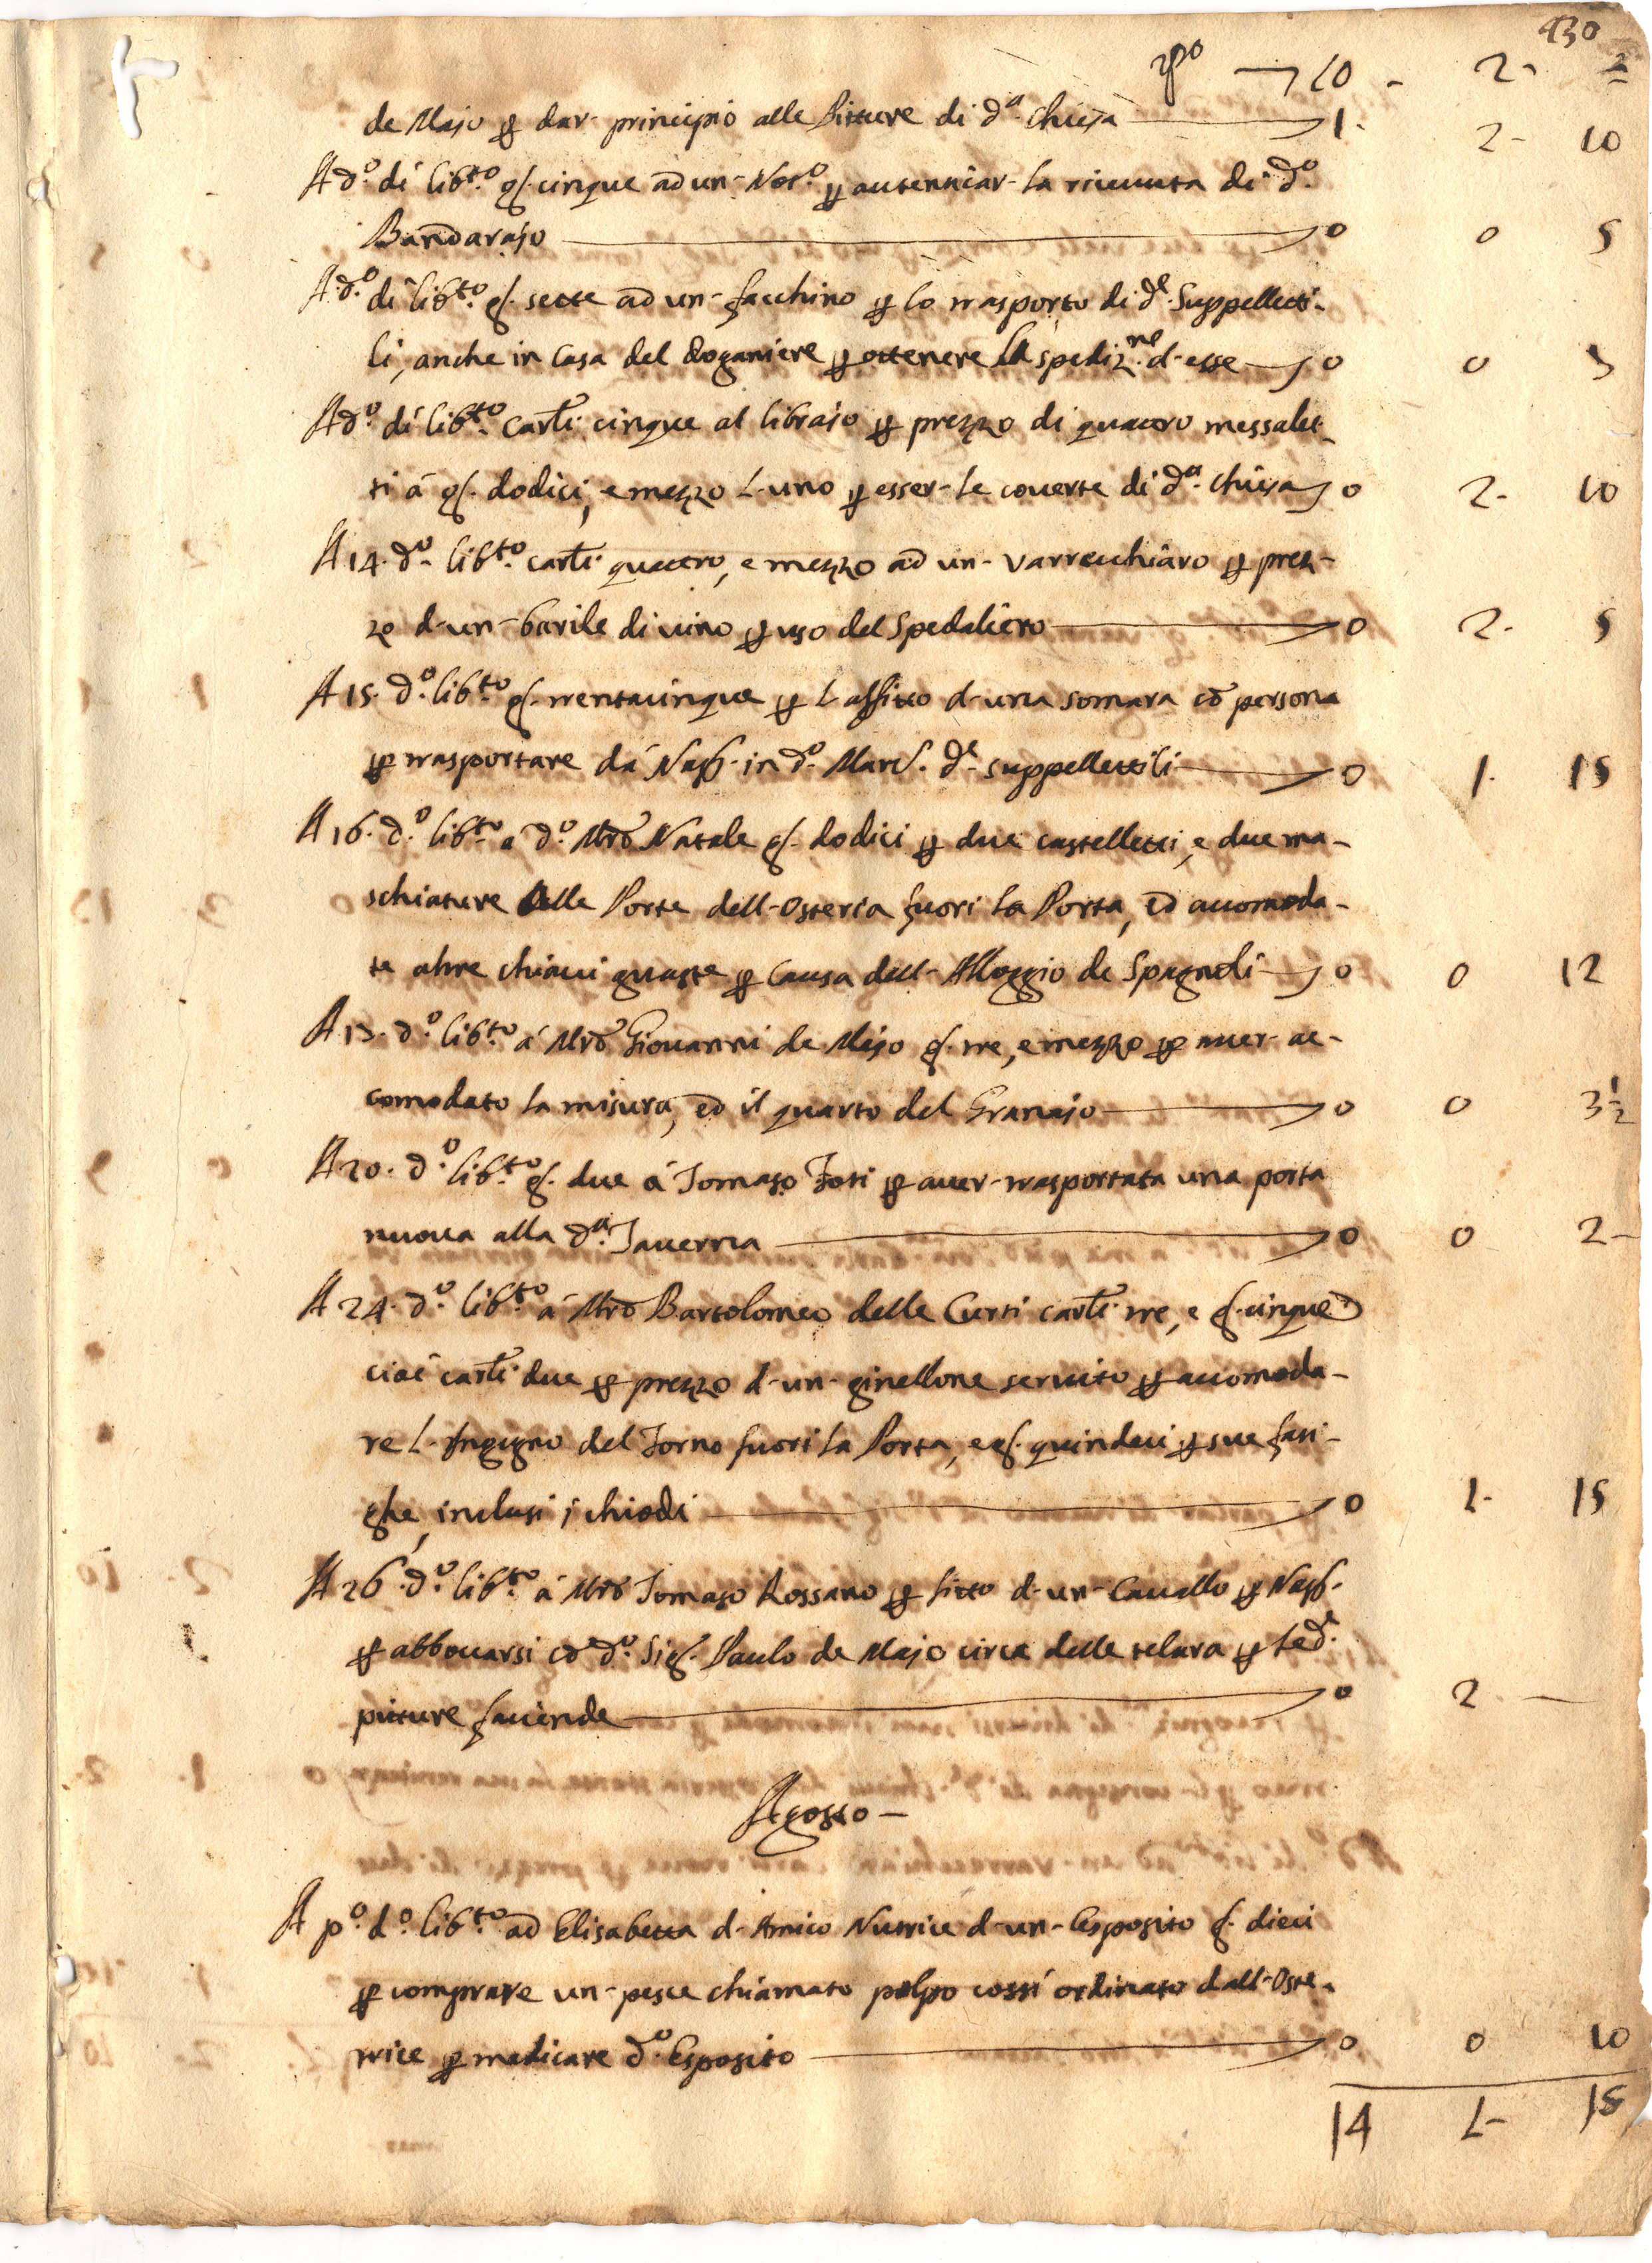 430
rpo 10 - 2 - 2
de Majo p dar- principio alle Pitture di d.a Chiesa 1. 2 - 10
A d.o dì lib.to g. cinque ad un- Not.o p autenticar- la riceuuta di d.o
Bandarajo 0 0 5
A d.o dì lib.to g. sette ad un- facchino p lo trasporto di d.e Suppelletti-
li, anche in Casa del Doganiere p ottenere la spediz.ne d-esse 0 0
A d.o dì lib.to carl.i cinque al librajo p prezzo di quattro messalet-
ti à g. dodici, e mezzo l-uno p esser- le couerte di d.a Chiesa 0 2 - 10
A 14. d.o lib.to carl.i quattro, e mezzo ad un- varrecchiaro p prez-
zo d-un- barile di uino p uso del Spedaliero 0 2 - 5
A 15. d.o lib.to g. trentacinque p l-affitto d-una somara cō persona
p trasportare dà Nap. in d.o Marc. d.e suppellettili 0 1. 15
A 16. d.o lib.to à d.o Mrō Natale g. dodici p due castelletti, e due ma-
schiature alle Porte dell-Osteria fuori la Porta, ed accomoda-
te altre chiaui guaste p causa dell-Alloggio de Spagnoli 0 0 12
A 17. d.o lib.to à Mrō Giouanni de Majo g. tre, e mezzo p auer- ac-
comodato la misura, ed il quarto del Granajo 0 0 3 1/2
A 20. d.o lib.to g. due à Tomaso Foti p auer- trasportata una porta
nuoua alla d.a Tauerna 0 0 2 -
A 24. d.o lib.to à Mrō Bartolomeo delle Curti carl.i tre, e g. cinque
cioè carl.i due p prezzo d-un- ginellone seruito p accomoda-
re l-Ingegno del Forno fuori la Porta, e g. quindeci p sue fati-
ghe, inclusi i chiodi 0 1 - 15
A 26. d.o lib.to à Mrō Tomaso Rossano p fitto d-un- Cauallo p Nap.
p abboccarsi cō d.o Sig. Paulo de Majo circa delle telara p le d.e
pitture faciende 0 2 -
Agosto -
A p.o d.o lib.to ad Elisabetta d-Amico Nutrice d-un- Esposito g. dieci
p comprare un- pesce chiamato polpo cossì ordinato dall-Oste-
trice p medicare d.o Esposito 0 0 10
14 1 - 15